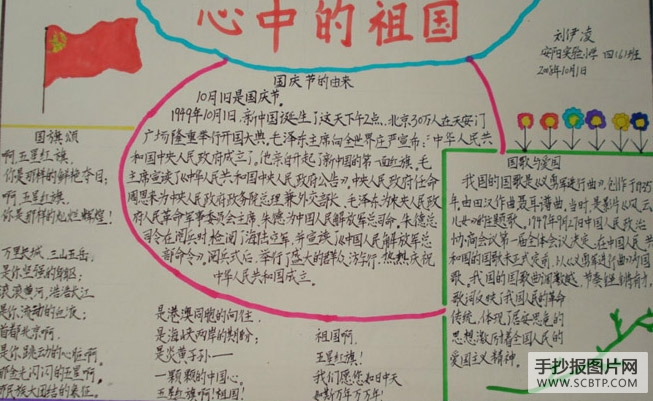 心中的祖国
刘伊凌
安阳实验小学 四(6)班
2008年10月1日
国庆节的由来
10月1日是国庆节。
1949年10月1日,新中国诞生了这天下午2点,北京30万人在天安门
广场隆重举行开国大典。毛泽东主席向全世界庄严宣布:“中华人民共
和国中央人民政府成立了。”北京升起了新中国的第一面红旗。毛
主席宣读了《中华人民共和国中央人民政府公告》。中央人民政府任命
周恩来为中央人民政府政务院总理兼外交部长,毛泽东为中央人民政
府人民革命军事委员会主席,朱德为中国人民解放军总司令。朱德总
司令在阅兵时,检阅了海陆空军,并宣读了《中国人民解放军总
部命令》。阅兵式后,举行了盛大的群众游行,热烈庆祝
中华人民共和国成立。
国旗颂
啊,五星红旗,
你是那样的鲜艳夺目;
啊,五星红旗,
你是那样的灿烂辉煌!
万里长城,三山五岳,
是你坚强的身躯;
滚滚黄河,浩浩长江
是你流动的血液;
首都北京啊,
是你跳动的心脏啊,
那金光闪闪的五星啊,
是民族大团结的象征。
是港澳同胞的向往,
是海峡两岸的期盼;
是炎黄子孙——
一颗颗的中国心。
五星红旗啊!祖国!
祖国啊,
五星红旗!
我们愿您如日中天
如斯万年万万年!
国歌与爱国
我国的国歌是《义勇军进行曲》,创作于1935
年,由田汉作曲聂耳谱曲,当时是影片《风云
儿女》的主题歌。1949年9月27日中国人民政治
协商会议第一届全体会议决定,在中国人民共
和国的国歌未正式定前,以《义勇军进行曲》为国
歌。我国的国歌曲调激越,节奏铿锵有力,
歌词反映了我国人民的革命
传统,体现了居安思危的
思想激励着全国人民的
爱国主义精神。
手抄报图片网
WWW.SCBTP.COM